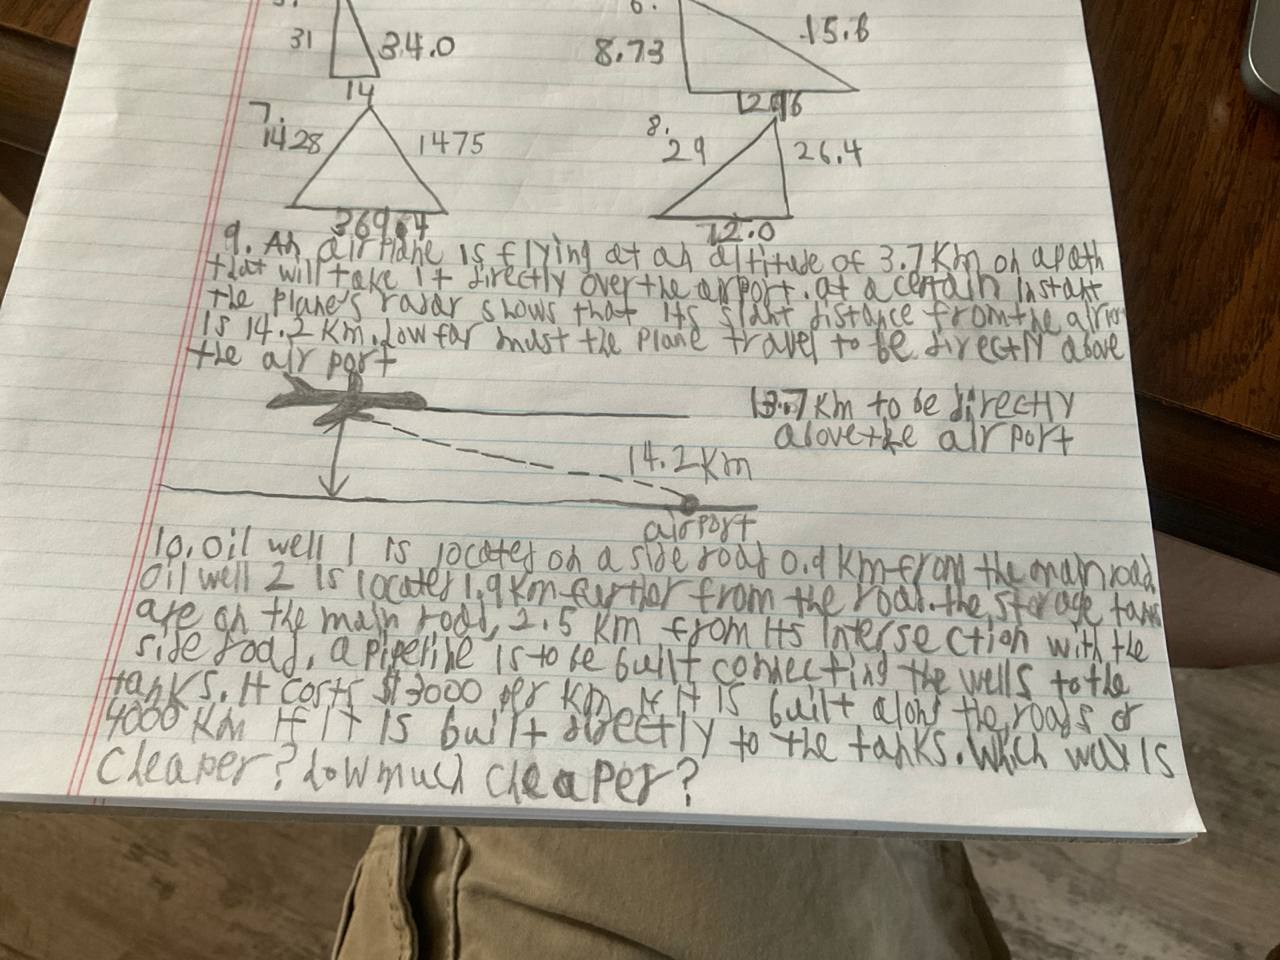 6.
31
34.0
14
8.73
15.6
7.
1428
1475
369.4
8.
29
26.4
12.0
9. An airplane is flying at an altitude of 3.7 Km on a path
that will take it directly over the airport. at a certain instant
the plane's radar shows that its slant distance from the
is 14.2 Km. how far must the plane travel to be directly above
the air port
13.7 Km to be directly
above the air port
14.2 Km
airport
10. Oil well 1 is located on a side road 0.9 Km from the main road.
Oil well 2 is located 1.9 Km further from the road. the storage tanks
are on the main road, 2.5 Km from its intersection with the
side road. a pipeline is to be built connecting the wells to the
tanks. It costs $3000 per Km if it is built along the roads or
4000 Km if it is built directly to the tanks. Which way is
cleaper? how much cleaper?